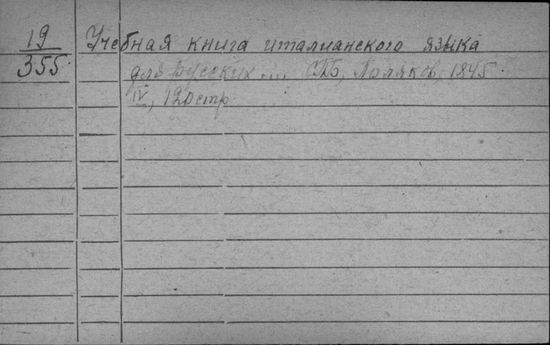 19
355
Учебная книга италианского языка
для русских ... СПБ, Поляков, 1845
IV, 120 стр